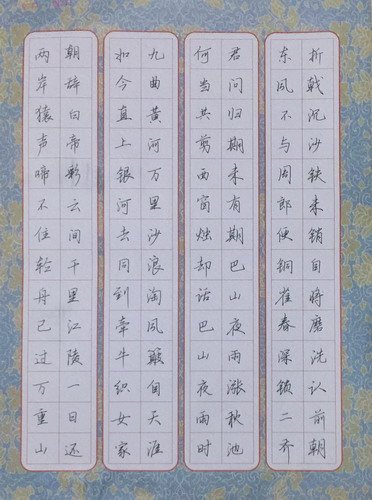 折戟沉沙铁未销自将磨洗认前朝
东风不与周郎便铜雀春深锁二乔
君问归期未有期巴山夜雨涨秋池
何当共剪西窗烛却话巴山夜雨时
九曲黄河万里沙浪淘风簸自天涯
如今直上银河去同到牵牛织女家
朝辞白帝彩云间千里江陵一日还
两岸猿声啼不住轻舟已过万重山